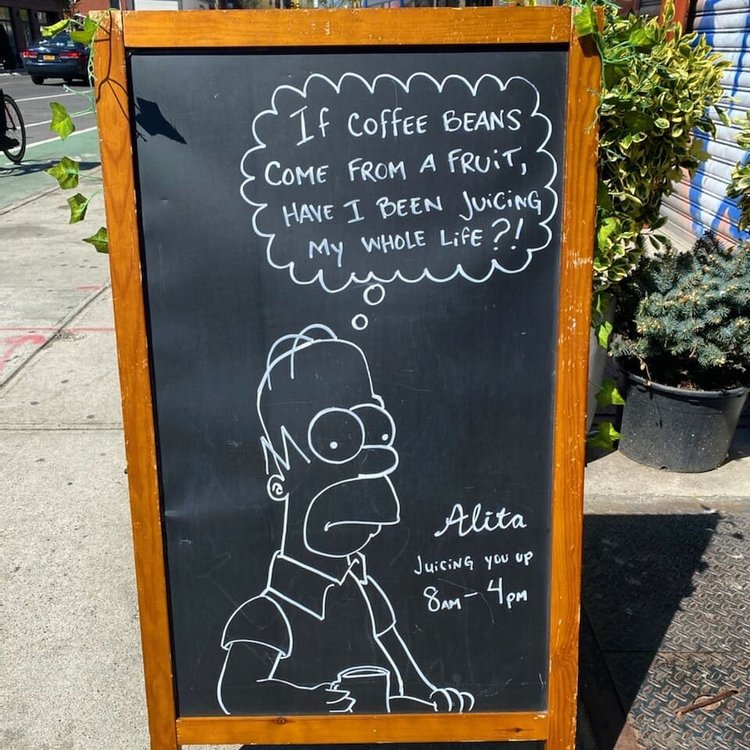 If COFFEE BEANS
COME FROM A FRUIT,
HAVE I BEEN JUICING
MY WHOLE LIFE?!
Alita
JUICING YOU UP
8AM - 4PM